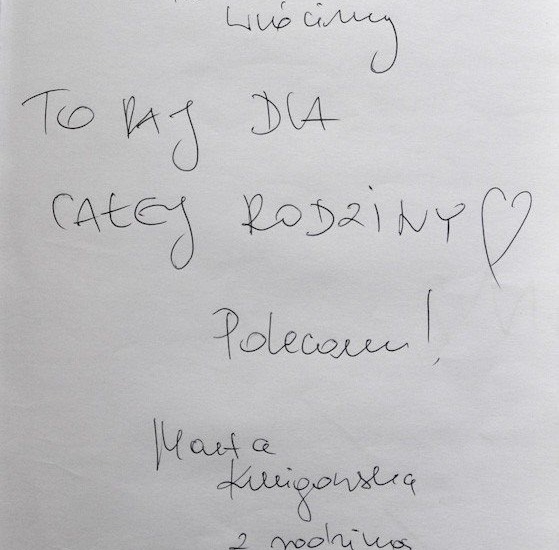 wrócimy
TO RAJ DLA
CAŁEJ RODZINY
Polecam!
Marta
z rodziną